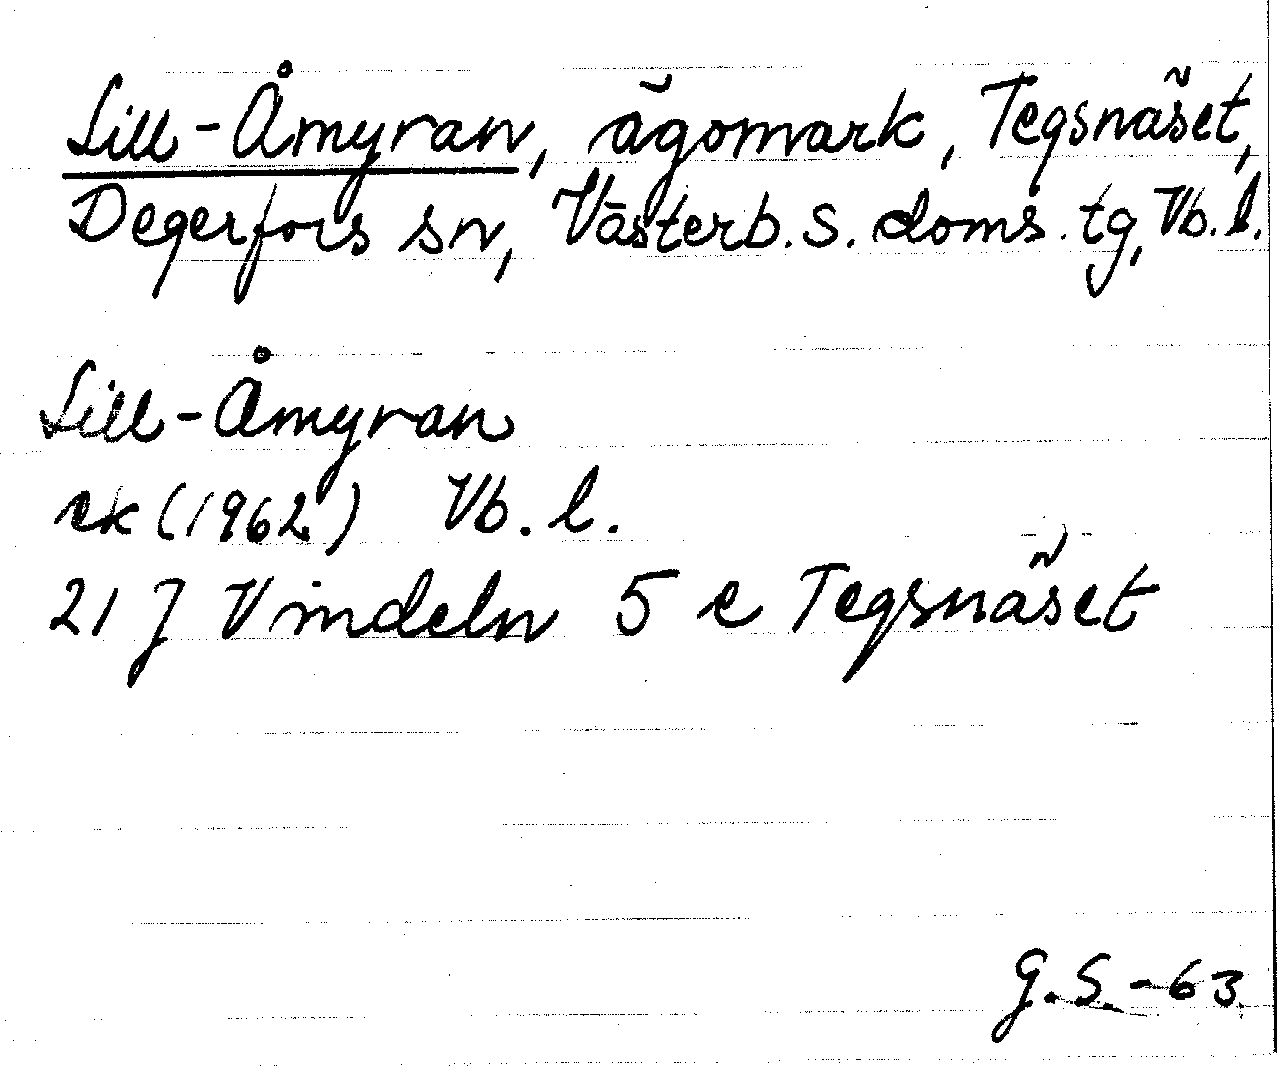 Lill-Åmyran, ägomark, Tegsnäset,
Degerfors sn, Västerb. S. doms. tg, Vb. l.
Lill-Åmyran
ek (1962) Vb. l.
21 J Vindeln 5 e Tegsnäset
G.S.-63